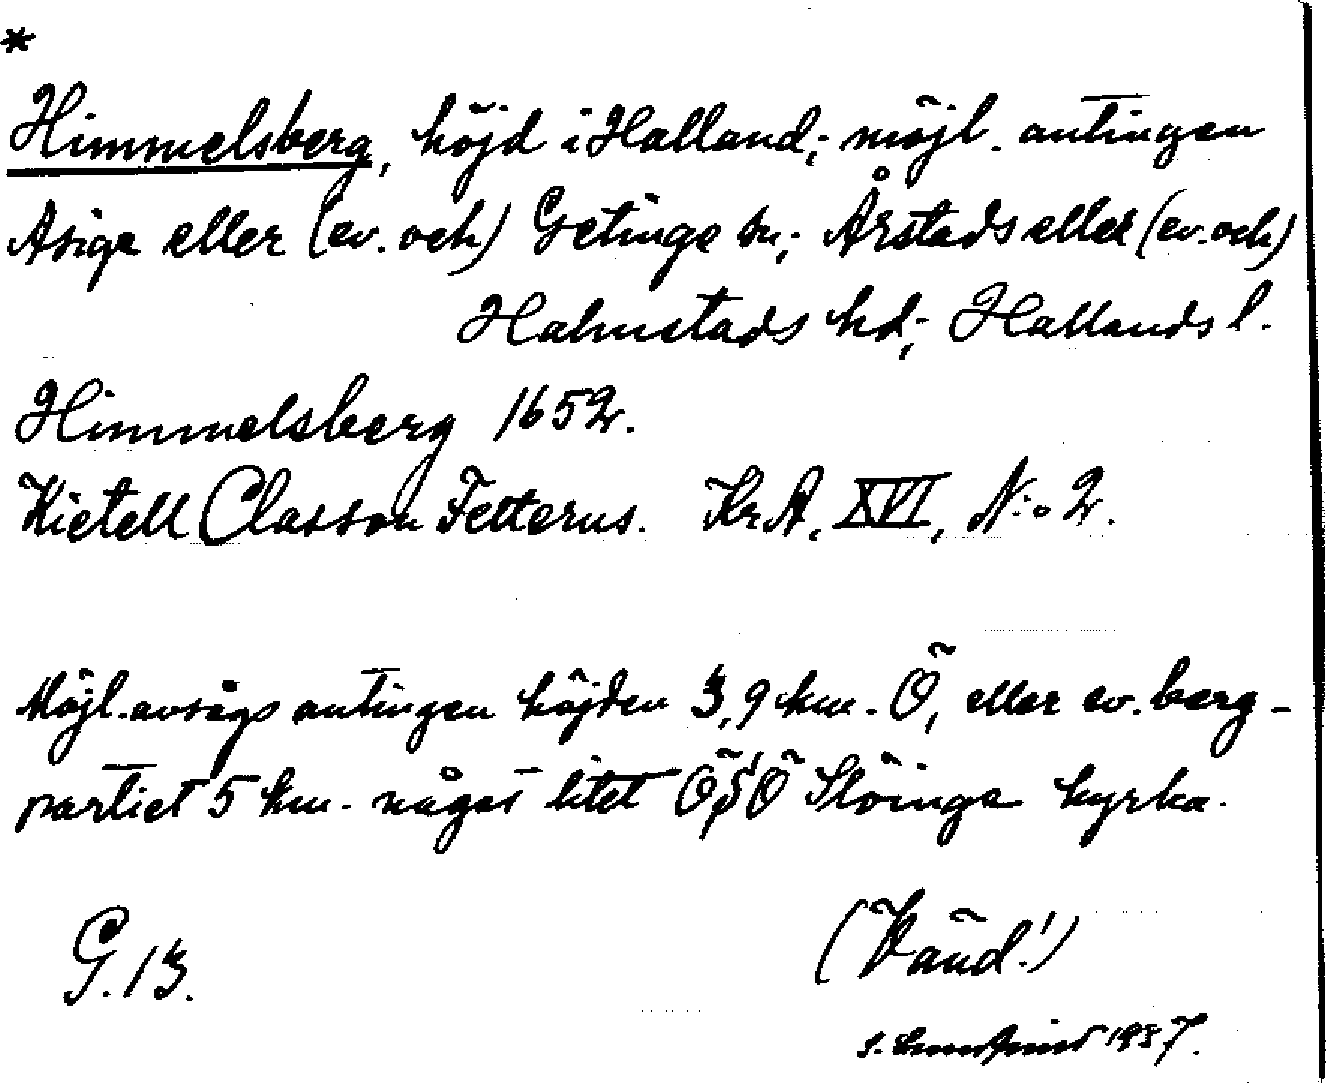 *
Himmelsberg, höjd i Halland; möjl. antingen
Asige eller (ev. och) Getinge sn; Årstads eller (ev. och)
Halmstads hd; Hallands l.
Himmelsberg 1652.
Kietell Classon Fetterus. Kr.A. XVI, N:o 2.
Möjl. avsågs antingen höjden 3,9 km. Ö, eller ev. berg-
partiet 5 km. något litet ÖSÖ Slöinge kyrka.
G. 13.
(Vänd!)
1937.